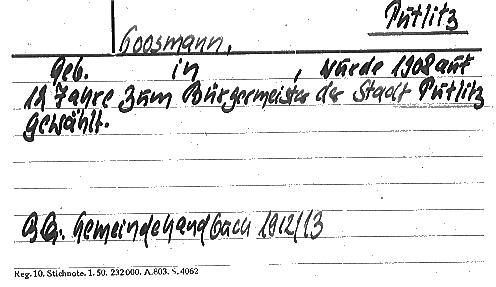 Putlitz
Goosmann,
Geb. in , wurde 1908 auf
12 Jahre zum Bürgermeister der Stadt Putlitz
gewählt.
BG. Gemeindehandbuch 1912/13
Reg. 10. Stichnote. 1. 50. 232000. A.803. S.4062